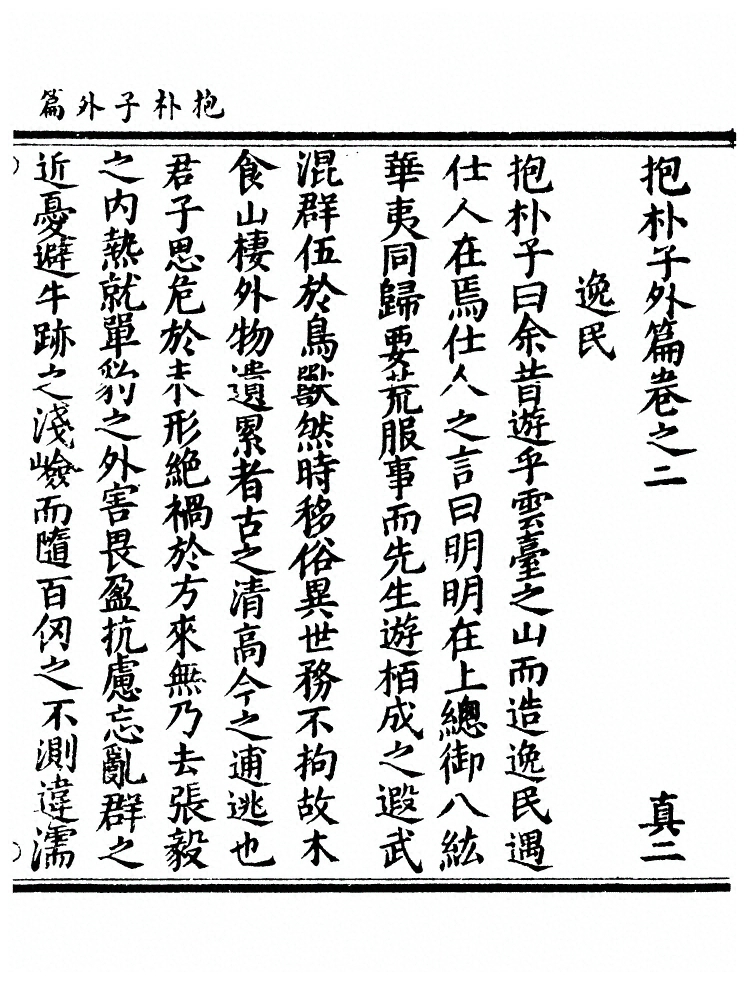 抱朴子外篇
抱朴子外篇卷之二
真二
逸民
抱朴子曰余昔遊乎雲臺之山而造逸民遇
仕人在焉仕人之言曰明明在上總御八紘
華夷同歸要荒服事而先生遊栢成之遐武
混群伍於鳥獸然時移俗異世務不拘故木
食山棲外物遺累者古之清高今之逋逃也
君子思危於未形絶禍於方來無乃去張毅
之内熱就單豹之外害畏盈抗慮忘亂群之
近憂避牛跡之淺嶮而隨百仞之不測違濡